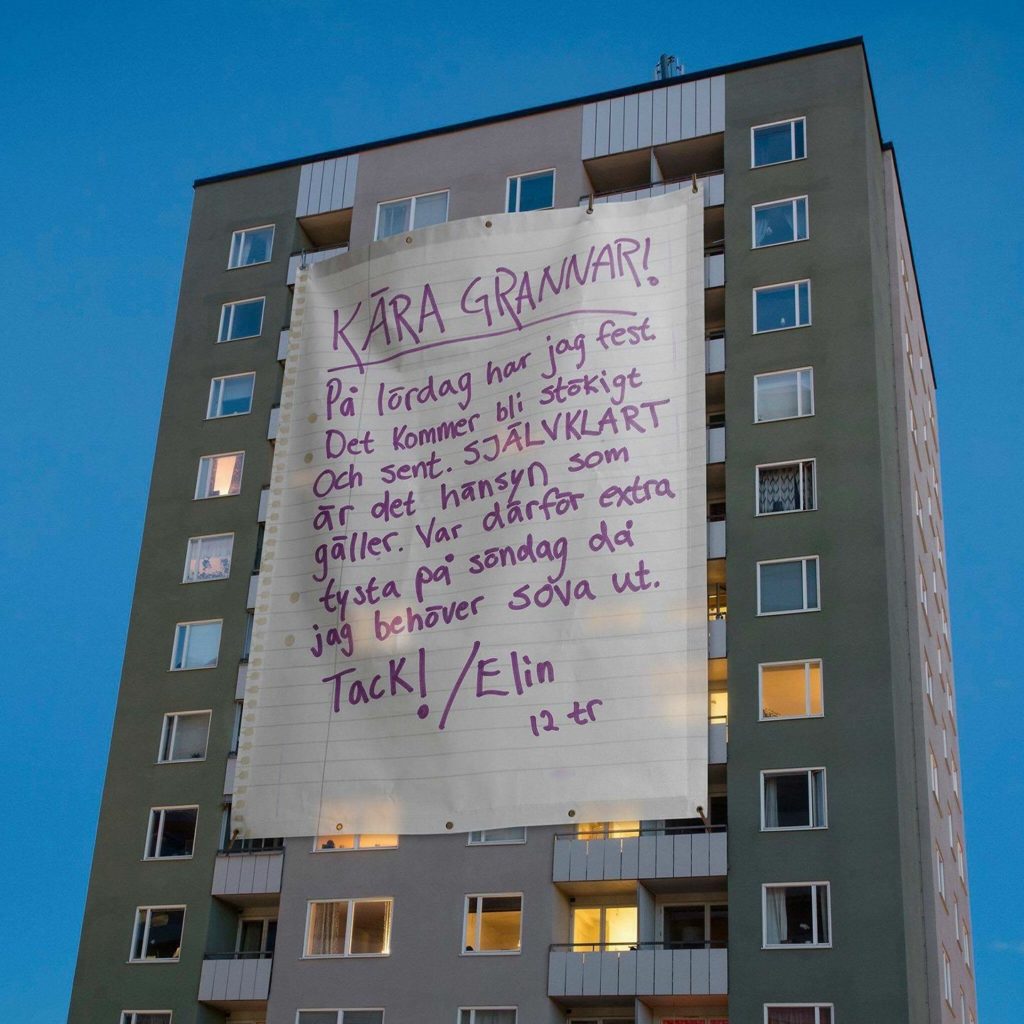 KÄRA GRANNAR!
På lördag har jag fest.
Det kommer bli stökigt
och sent. SJÄLVKLART
är det hänsyn som
gäller. Var därför extra
tysta på söndag då
jag behöver sova ut.
Tack! /Elin
12 tr